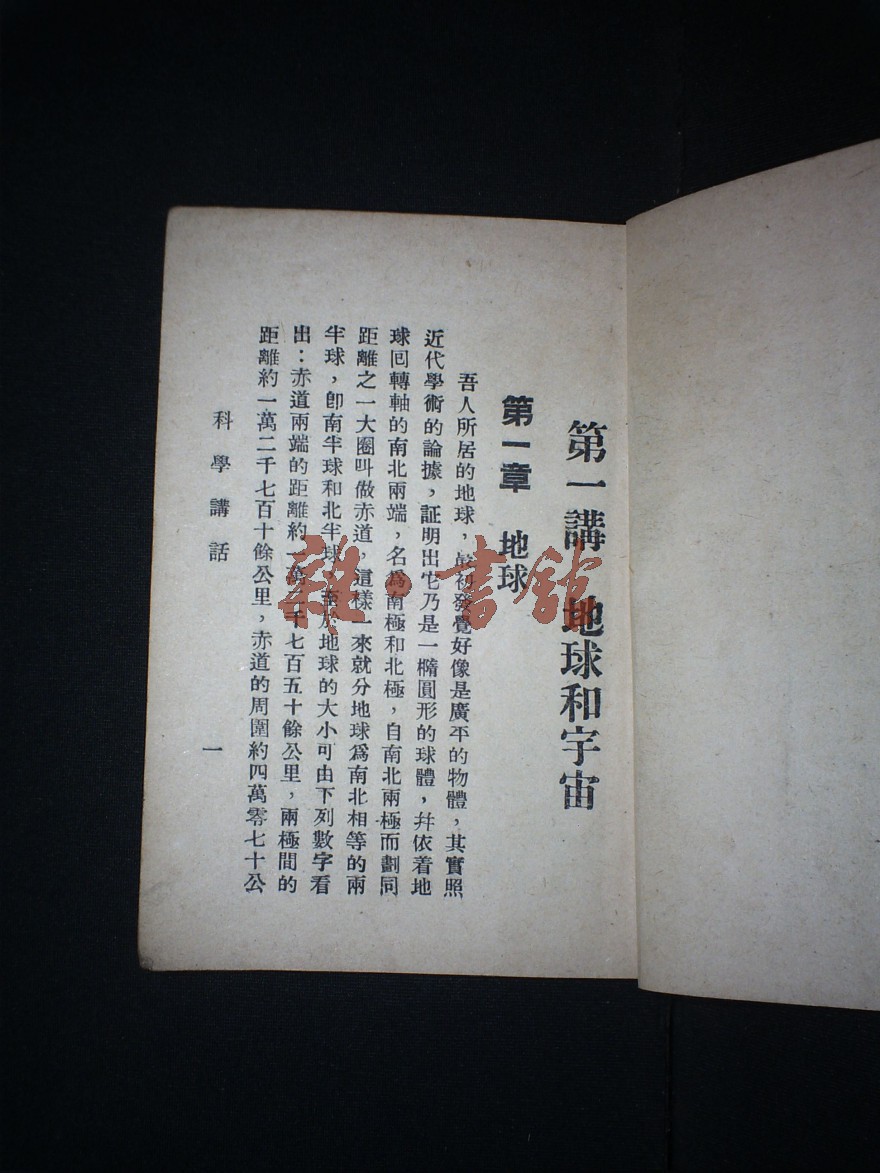 第一講　地球和宇宙
第一章　地球
吾人所居的地球，最初發覺好像是廣平的物體，其實照
近代學術的論據，証明出它乃是一橢圓形的球體，幷依着地
球回轉軸的南北兩端，名爲南極和北極，自南北兩極而劃同
距離之一大圈叫做赤道，這樣一來就分地球爲南北相等的兩
半球，卽南半球和北半球，至於地球的大小可由下列數字看
出：赤道兩端的距離約一萬二千七百五十餘公里，兩極間的
距離約一萬二千七百十餘公里，赤道的周圍約四萬零七十公
科學講話
一
雜·書館